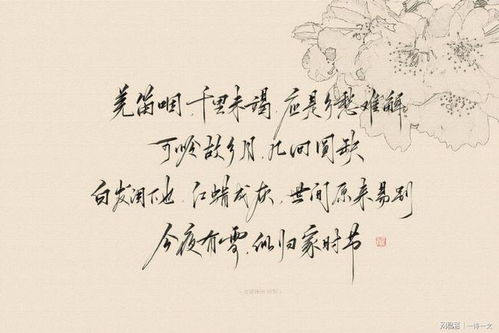 羌笛咽，千里来谒，应是乡愁难解。
可怜故乡月，几回圆缺
白发阔下也，红蜡成灰，世间原来易别
今夜有雪，似归家时节
网易号 | 一诗一文